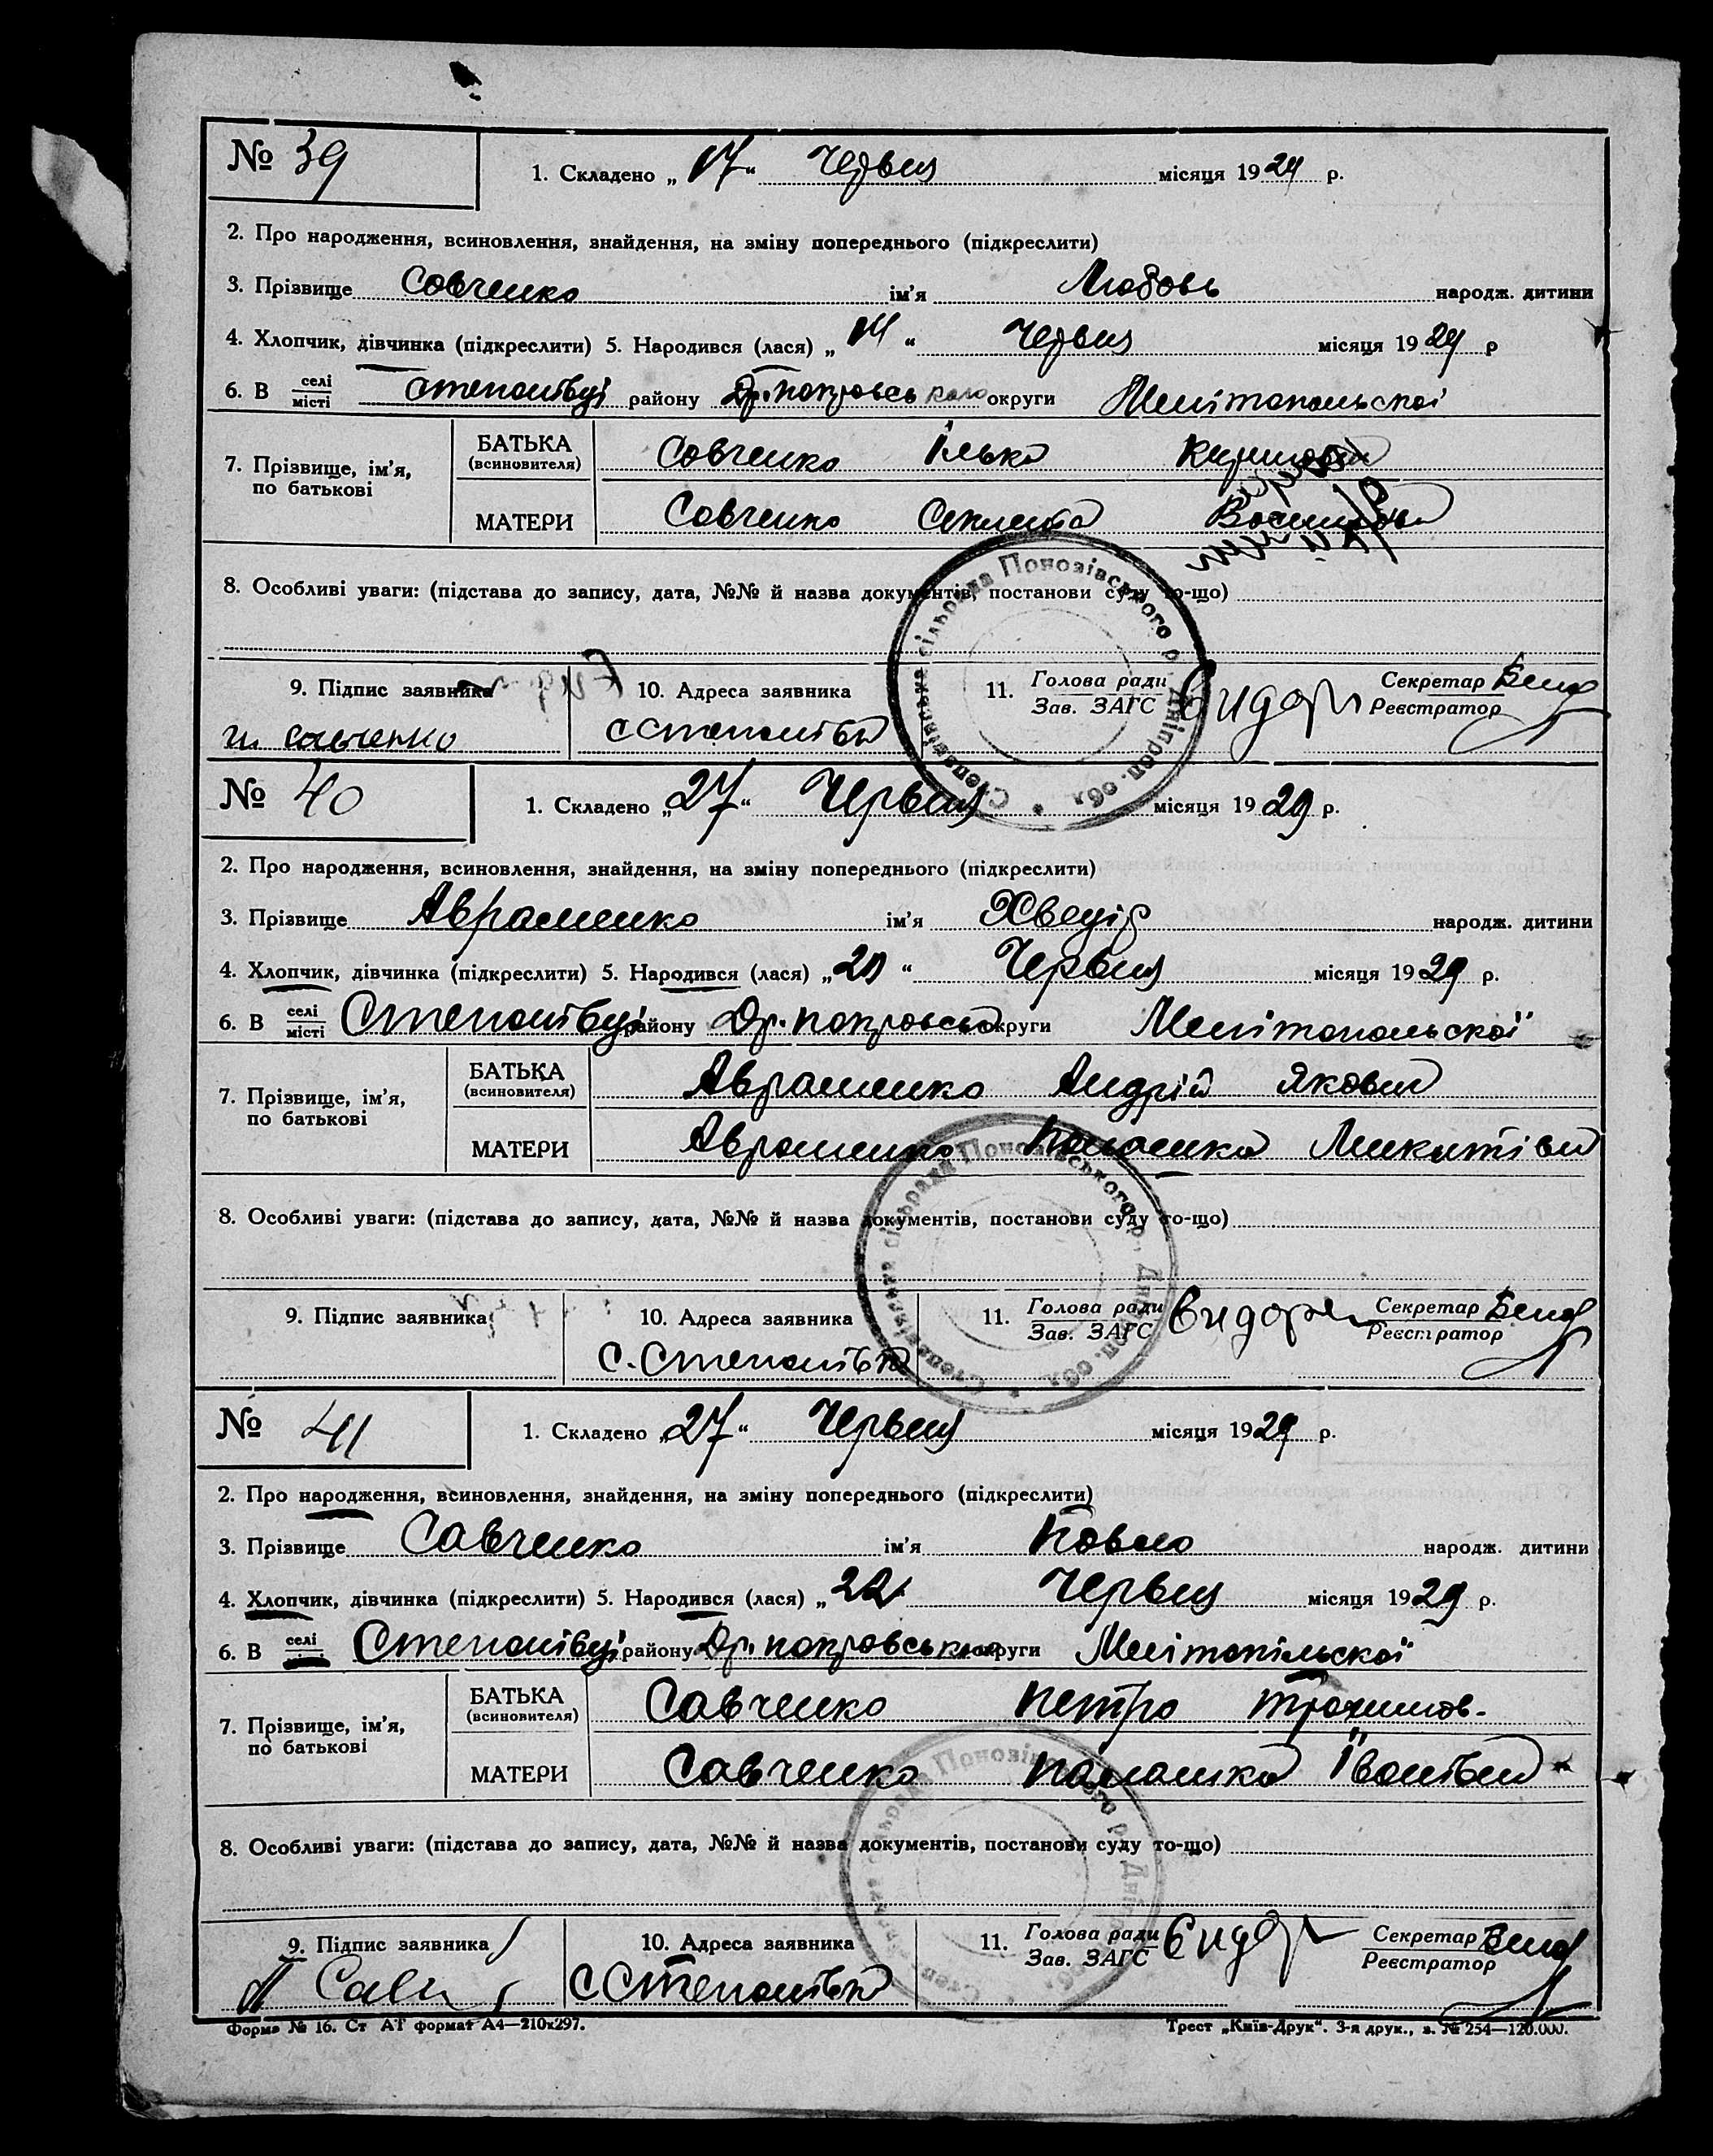 № 39
1. Складено „17“ Червня місяця 1929 р.
2. Про народження, всиновлення, знайдення, на зміну попереднього (підкреслити)
3. Прізвище Совченко ім'я Любовь народж. дитини
4. Хлопчик, дівчинка (підкреслити) 5. Народився (лася) „14“ Червня місяця 1929 р
6. В селі місті Степанівці району Др. покровського округи Мелітопольскої
7. Прізвище, ім'я, по батькові
БАТЬКА (всиновителя) Совченко Ілько
МАТЕРИ Совченко
8. Особливі уваги: (підстава до запису, дата, №№ й назва документів, постанови суду то-що)
Степанівська сільрада Понозівського р. Дніпроп. обл.
9. Підпис заявника 10. Адреса заявника 11. Голова ради Зав. ЗАГС Секретар Реєстратор
Савченко с Степанівка
№ 40
1. Складено „27“ Червня місяця 1929 р.
2. Про народження, всиновлення, знайдення, на зміну попереднього (підкреслити)
3. Прізвище Авраменко ім'я Хведір народж. дитини
4. Хлопчик, дівчинка (підкреслити) 5. Народився (лася) „20“ Червня місяця 1929 р.
6. В селі місті Степанівці району Др. покровсько округи Мелітопольскої
7. Прізвище, ім'я, по батькові
БАТЬКА (всиновителя) Авраменко Андрій Якович
МАТЕРИ Авраменко Палашка Микитівн
8. Особливі уваги: (підстава до запису, дата, №№ й назва документів, постанови суду то-що)
Степанівська сільрада Понозівського р. Дніпроп. обл.
9. Підпис заявника 10. Адреса заявника 11. Голова ради Зав. ЗАГС Секретар Реєстратор
с. Степанівка
№ 41
1. Складено „27“ Червня місяця 1929 р.
2. Про народження, всиновлення, знайдення, на зміну попереднього (підкреслити)
3. Прізвище Савченко ім'я Павло народж. дитини
4. Хлопчик, дівчинка (підкреслити) 5. Народився (лася) „22 Червня місяця 1929 р.
6. В селі Степанівці району Др. покровського округи Мелітопільскої
7. Прізвище, ім'я, по батькові
БАТЬКА (всиновителя) Савченко Петро Трохимов.
МАТЕРИ Савченко Палашка Іванівна
8. Особливі уваги: (підстава до запису, дата, №№ й назва документів, постанови суду то-що)
9. Підпис заявника 10. Адреса заявника 11. Голова ради Зав. ЗАГС Секретар Реєстратор
с Степанівка
Форма № 16. Ст АТ формат А4—210х297. Трест „Київ-Друк“. 3-я друк., з. № 254—120.000.